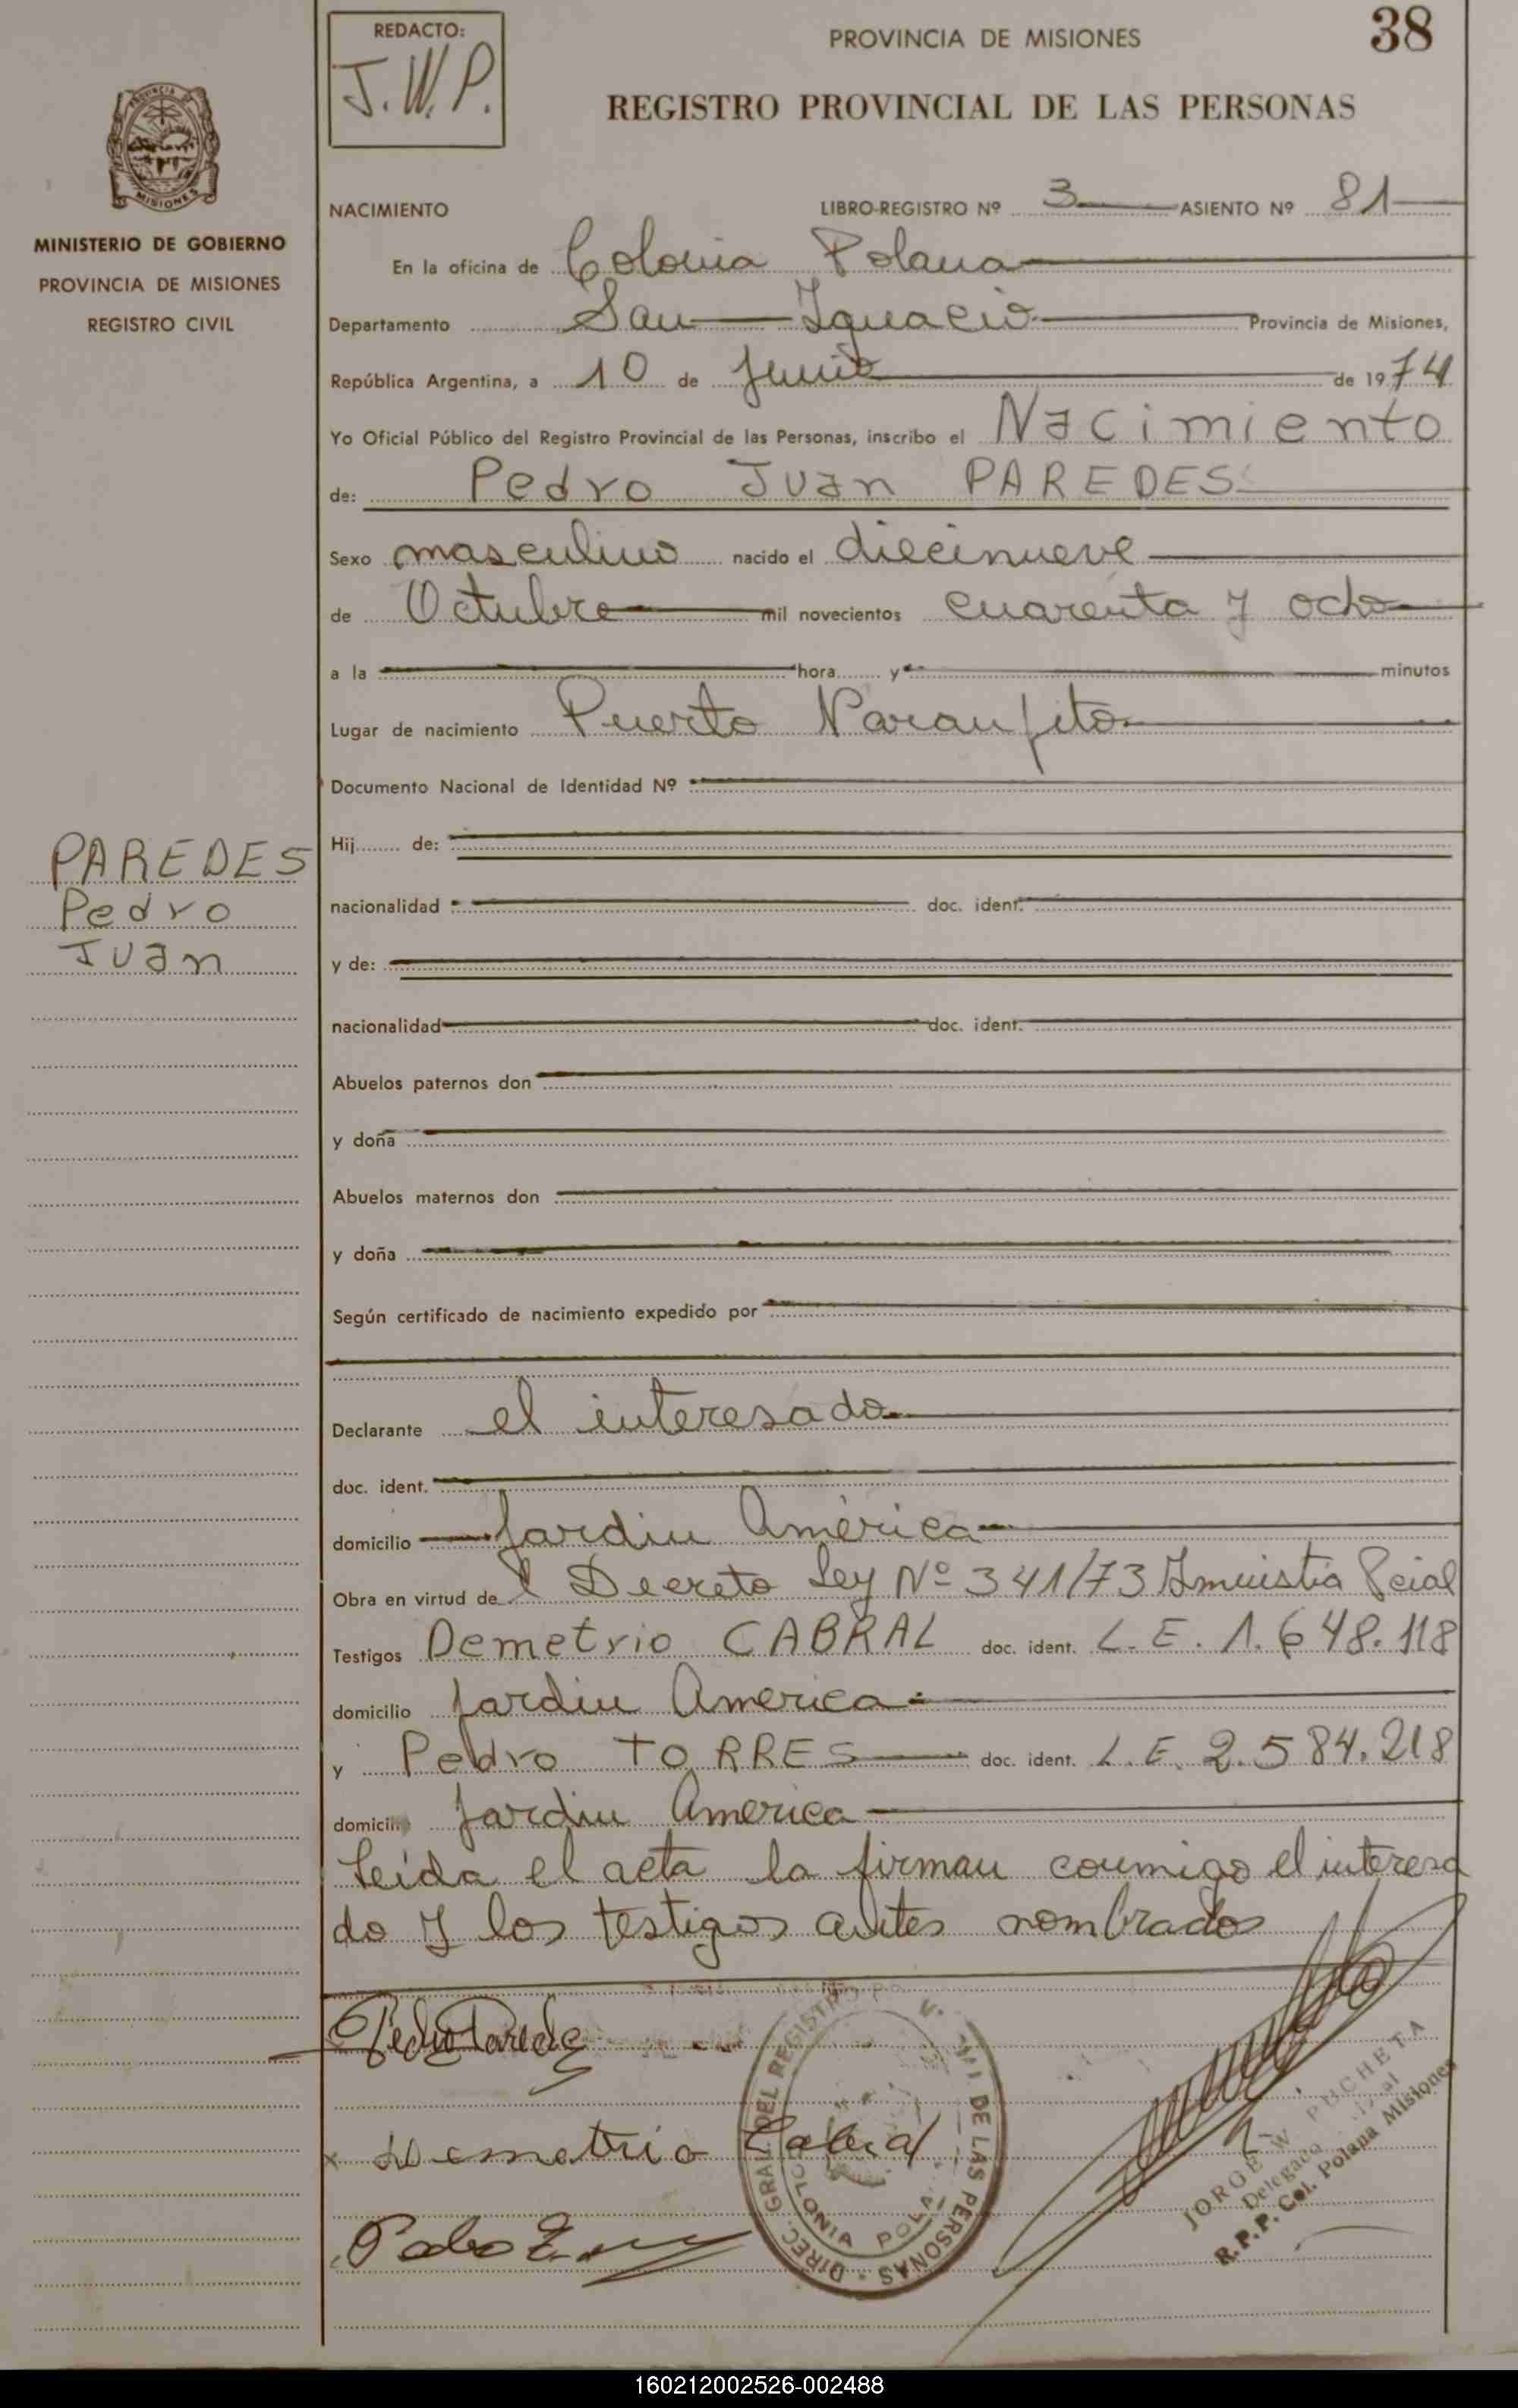 REDACTO:
J.W.P.
PROVINCIA DE MISIONES
38
REGISTRO PROVINCIAL DE LAS PERSONAS
PROVINCIA DE
MISIONES
MINISTERIO DE GOBIERNO
PROVINCIA DE MISIONES
REGISTRO CIVIL
NACIMIENTO LIBRO-REGISTRO Nº 3 ASIENTO Nº 81
En la oficina de Colonia Polana
Departamento San Ignacio Provincia de Misiones,
República Argentina, a 10 de Junio de 1974
Yo Oficial Público del Registro Provincial de las Personas, inscribo el Nacimiento
de: Pedro Juan PAREDES
Sexo masculino nacido el diecinueve
de Octubre mil novecientos cuarenta y ocho
a la hora y minutos
Lugar de nacimiento Puerto Naranjito
Documento Nacional de Identidad Nº
PAREDES
Pedro
Juan
Hij de:
nacionalidad doc. ident.
y de:
nacionalidad doc. ident.
Abuelos paternos don
y doña
Abuelos maternos don
y doña
Según certificado de nacimiento expedido por
Declarante el interesado
doc. ident.
domicilio Jardin América
Obra en virtud de l Decreto Ley Nº 341/73 Amnistia Pcial
Testigos Demetrio CABRAL doc. ident. L.E. 1.648.118
domicilio Jardin America
y Pedro TORRES doc. ident. L.E. 2.584.218
domicilio Jardin America
Leida el acta la firman conmigo el interesa
do y los testigos antes nombrados
Pedro Paredes
Demetrio Cabral
Pedro
DIREC. GRAL. DEL REGISTRO DE LAS PERSONAS
COLONIA POLANA
JORGE W PUCHETA
Delegado
R.P.P. Col. Polana Misiones
160212002526-002488